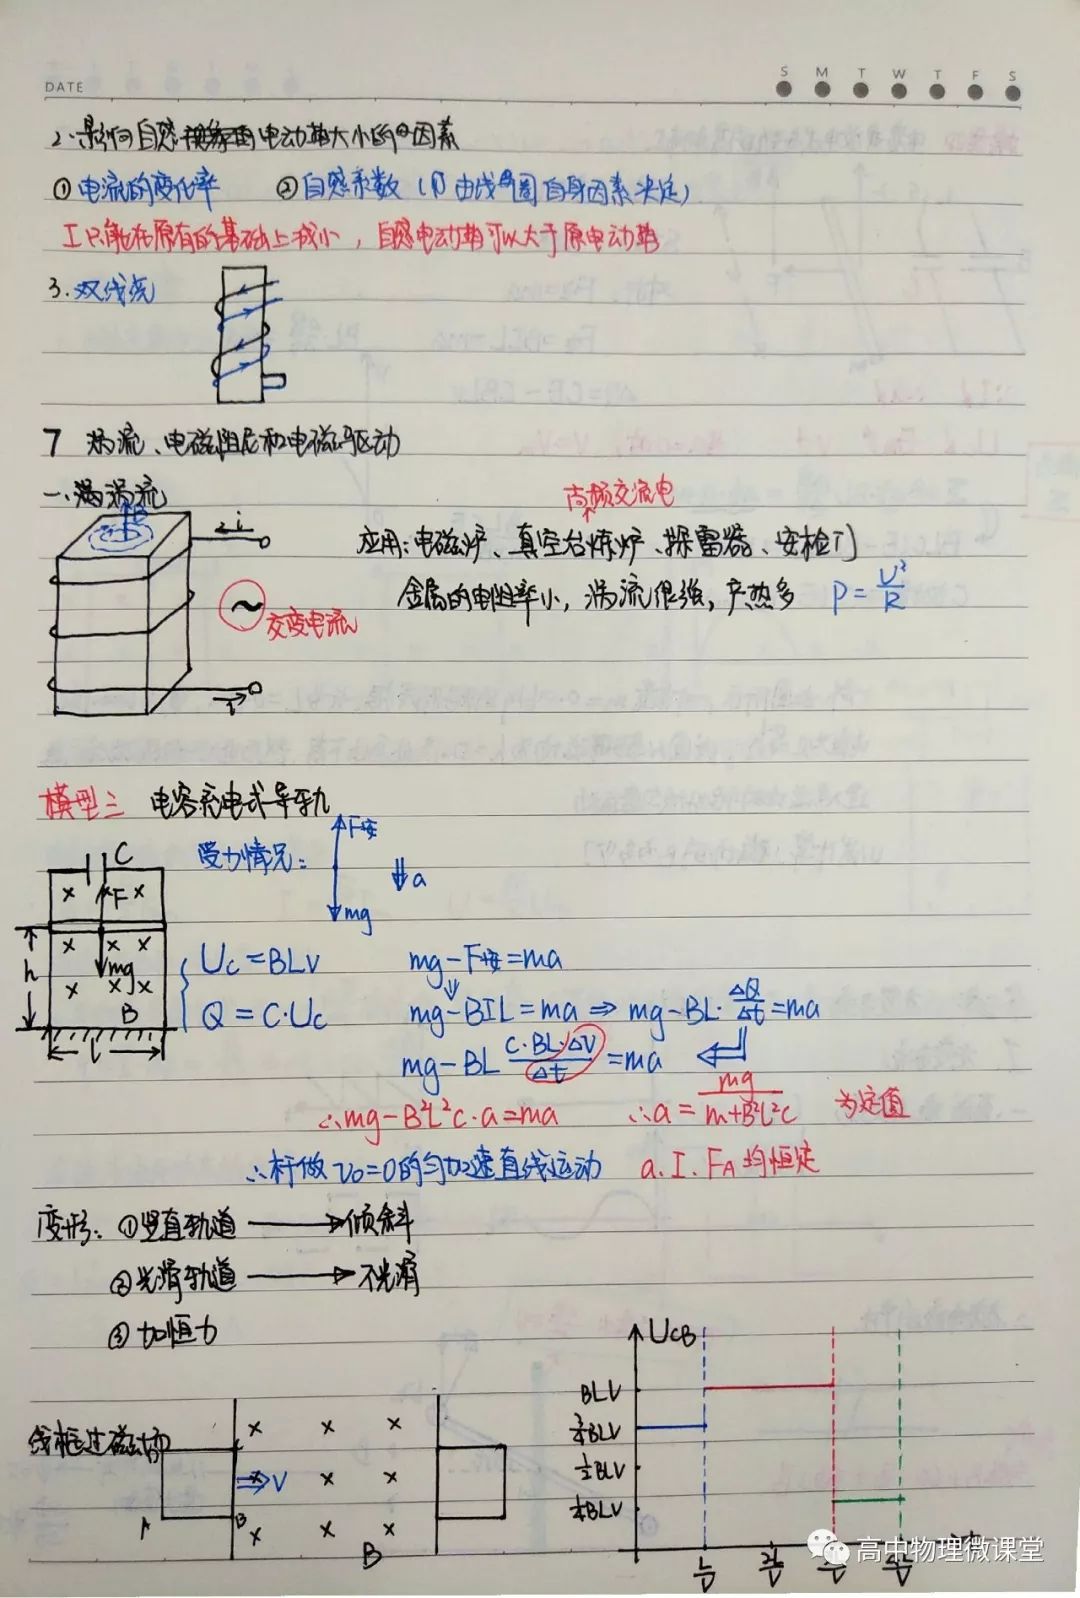 DATE
S M T W T F S
2.影响自感电动势大小的因素
① 电流的变化率 ② 自感系数 (由线圈自身因素决定)
I只能在原有的基础上减小，自感电动势可以大于原电动势
3.双线绕
7 涡流、电磁阻尼和电磁驱动
一.涡流
高频交流电
B
i
应用:电磁炉、真空冶炼炉、探雷器、安检门
金属的电阻率小，涡流很强，产热多 P=U²/R
~交变电流
i
模型三 电容充电式导轨
受力情况:
F安
a
mg
C
F
h
mg
B
l
Uc=BLV
Q=C·Uc
mg-F安=ma
mg-BIL=ma⇒mg-BL·ΔQ/Δt=ma
mg-BL C·BL·ΔV/Δt=ma
∴mg-B²L²C·a=ma ∴a=mg/m+B²L²C 为定值
∴杆做V₀=0的匀加速直线运动 a.I.FA均恒定
变形:①竖直轨道→倾斜
②光滑轨道→不光滑
③加恒力
线框过磁场
A
B
V
B
UCB
BLV
¾BLV
½BLV
¼BLV
L/V 2L/V
高中物理微课堂